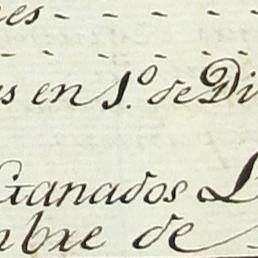 es - - - -
s en 1.º de Di
Ganados L
mbre de